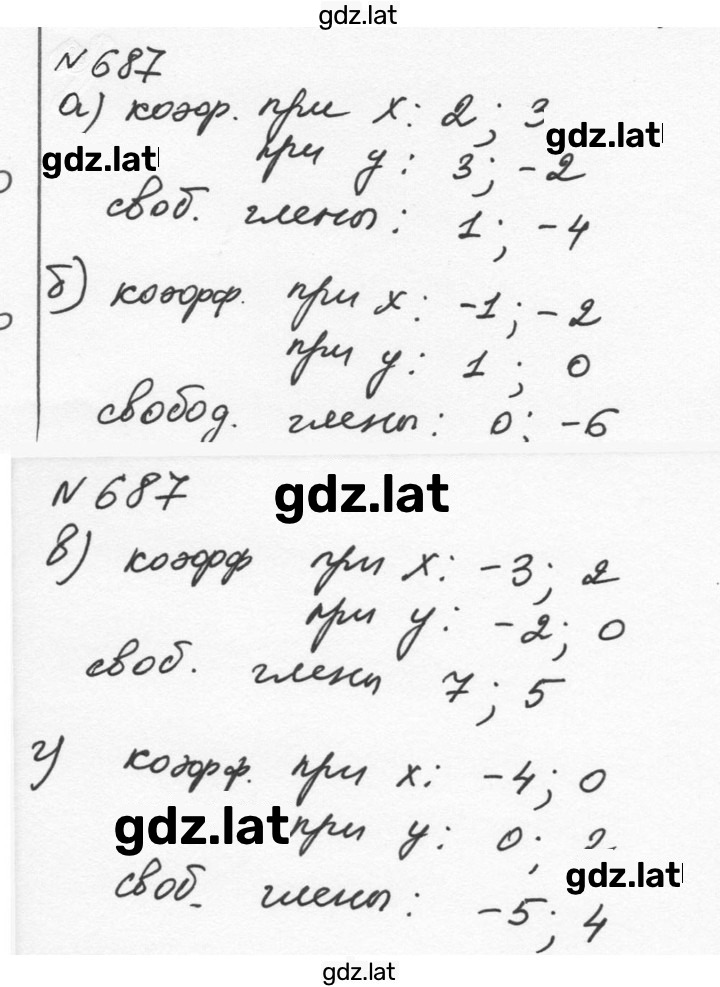 gdz.lat
№ 687
а) коэф. при x: 2; 3
gdz.lat
gdz.lat
при y: 3; -2
своб. члены: 1; -4
б) коэфф. при x: -1; -2
при y: 1; 0
свобод. члены: 0; -6
№ 687
gdz.lat
в) коэфф при x: -3; 2
при y: -2; 0
своб. члены 7; 5
г) коэфф. при x: -4; 0
gdz.lat
при y: 0; 2
gdz.lat
своб. члены: -5; 4
gdz.lat